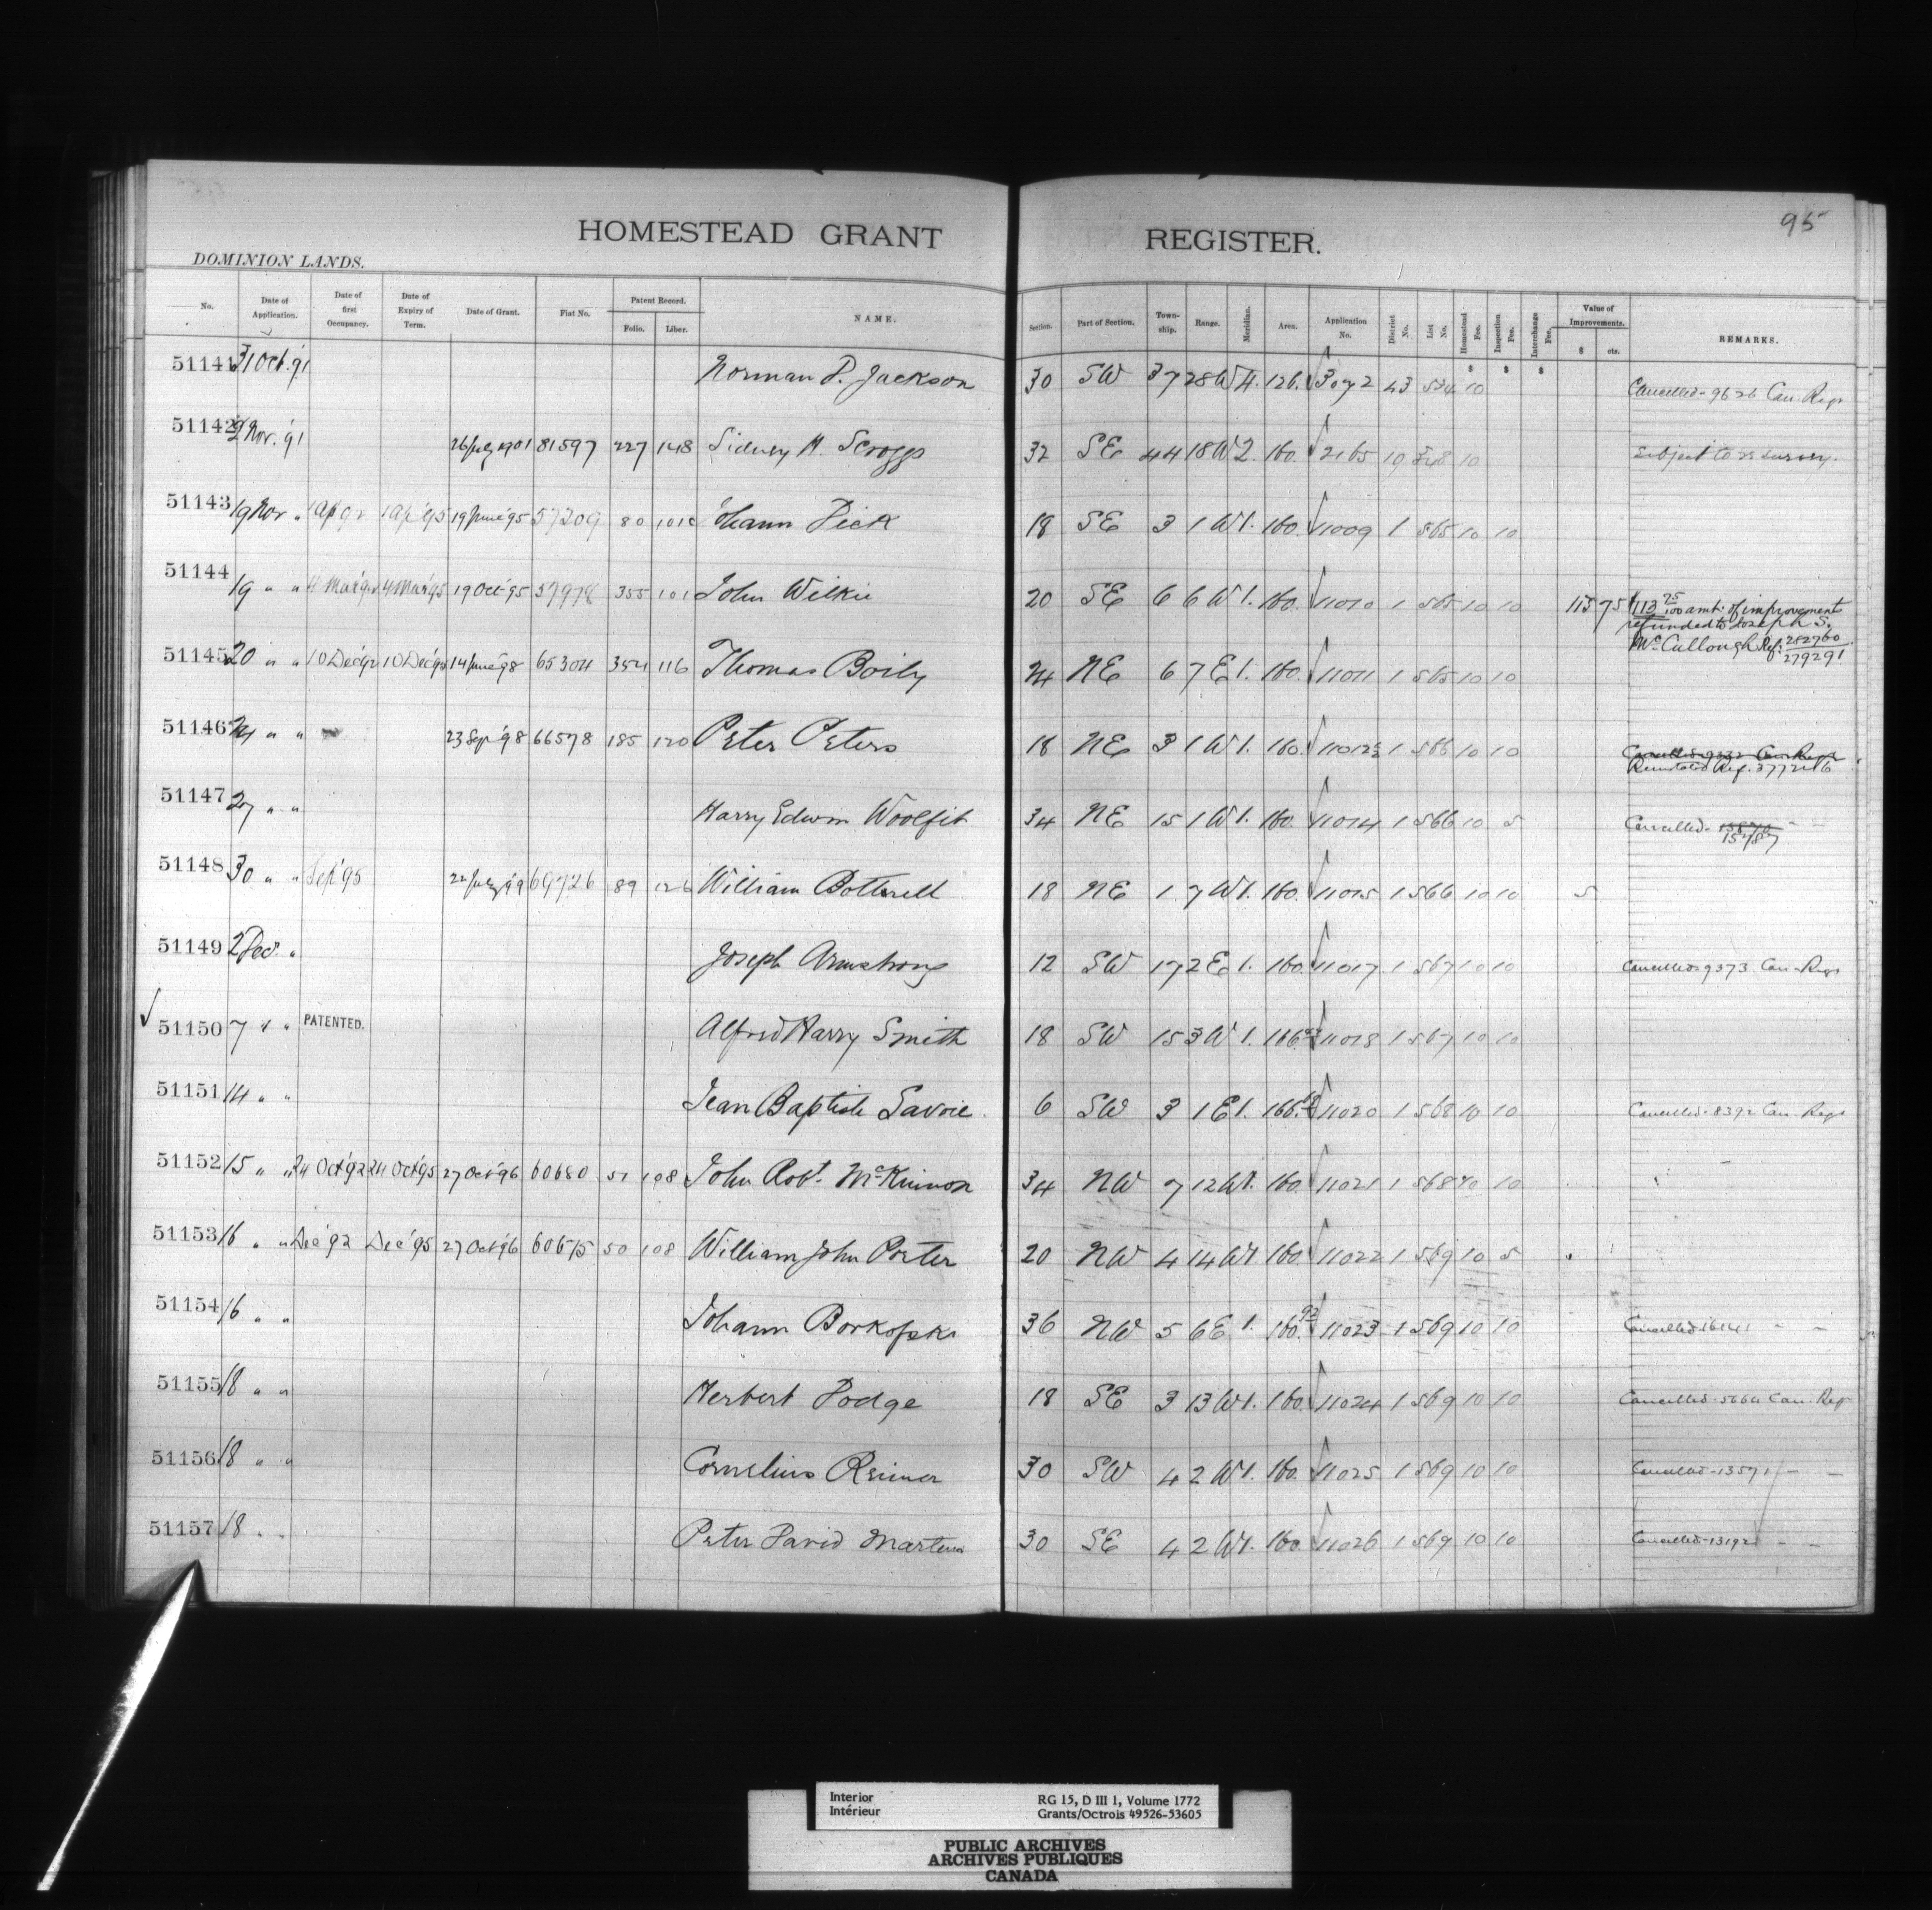 95
HOMESTEAD GRANT REGISTER.
DOMINION LANDS.
No. Date of Application. Date of first Occupancy. Date of Expiry of Term. Date of Grant. Fiat No. Patent Record. Folio. Liber. NAME. Section. Part of Section. Township. Range. Meridian. Area. Application No. District No. List No. Homestead Fee. Inspection Fee. Interchange Fee. Value of Improvements. $ cts. REMARKS.
$ $ $
51141 31 Oct. '91 Norman D. Jackson 30 SW 37 28 W 4. 126. 3072 43 534 10 Cancelled - 9626 Can. Regr
51142 2 Nov. '91 26 July 1901 81597 227 148 Sidney H. Scroggs 32 SE 44 18 W 2. 160. 2165 19 10 Subject to re survey.
51143 19 Nov " 1 Ap 92 1 Ap '95 19 June '95 57209 80 101 Johann Dick 18 SE 3 1 W 1. 160. 11009 1 565 10 10
51144 19 " " 4 Mar '92 4 Mar '95 19 Oct '95 57978 355 101 John Wilkie 20 SE 6 6 W 1. 160. 11010 1 565 10 10 113 75 113 75/100 amt. of improvement
refunded to Joseph S.
McCullough Ref: 282760
279291
51145 20 " " 10 Dec '92 10 Dec '95 14 June '98 65304 354 116 Thomas Boily 24 NE 6 7 E 1. 160. 11011 1 565 10 10
51146 24 " " 23 Sep '98 66578 185 120 Peter Peters 18 NE 3 1 W 1. 160. 11012½ 1 566 10 10 Cancelled 9332 Can. Regr
Reinstated Ref. 377216
51147 27 " " Harry Edwin Woolfit 34 NE 15 1 W 1. 160. 11014 1 566 10 5 Cancelled - 15787 " "
51148 30 " " Sep '95 22 July '99 69726 89 126 William Botterell 18 NE 1 7 W 1. 160. 11015 1 566 10 10 5
51149 2 Dec " Joseph Armstrong 12 SW 17 2 E 1. 160. 11017 1 567 10 10 Cancelled 9373 Can. Regr
51150 7 " " PATENTED. Alfred Harry Smith 18 SW 15 3 W 1. 166. 11018 1 567 10 10
51151 14 " " Jean Baptiste Savoie. 6 SW 3 1 E 1. 166. 11020 1 568 10 10 Cancelled - 8392 Can. Regr
51152 15 " " 24 Oct '92 24 Oct '95 27 Oct '96 60680 51 108 John Robt. McKinnon 34 NW 7 12 W 1. 160. 11021 1 568 10 10
51153 16 " " Dec '92 Dec '95 27 Oct '96 60675 50 108 William John Porter 20 NW 4 14 W 1 160. 11022 1 569 10 5
51154 16 " " Johann Borkofski 36 NW 5 6 E 1. 160.92 11023 1 569 10 10 Cancelled 16141 " "
51155 18 " " Herbert Dodge 18 SE 3 13 W 1. 160. 11024 1 569 10 10 Cancelled - 5664 Can. Regr
51156 18 " " Cornelius Reimer 30 SW 4 2 W 1. 160. 11025 1 569 10 10 Cancelled - 13571 " "
51157 18 " " Peter David Martens 30 SE 4 2 W 1. 160. 11026 1 569 10 10 Cancelled - 13192 " "
Interior RG 15, D III 1, Volume 1772
Intérieur Grants/Octrois 49526-53605
PUBLIC ARCHIVES
ARCHIVES PUBLIQUES
CANADA